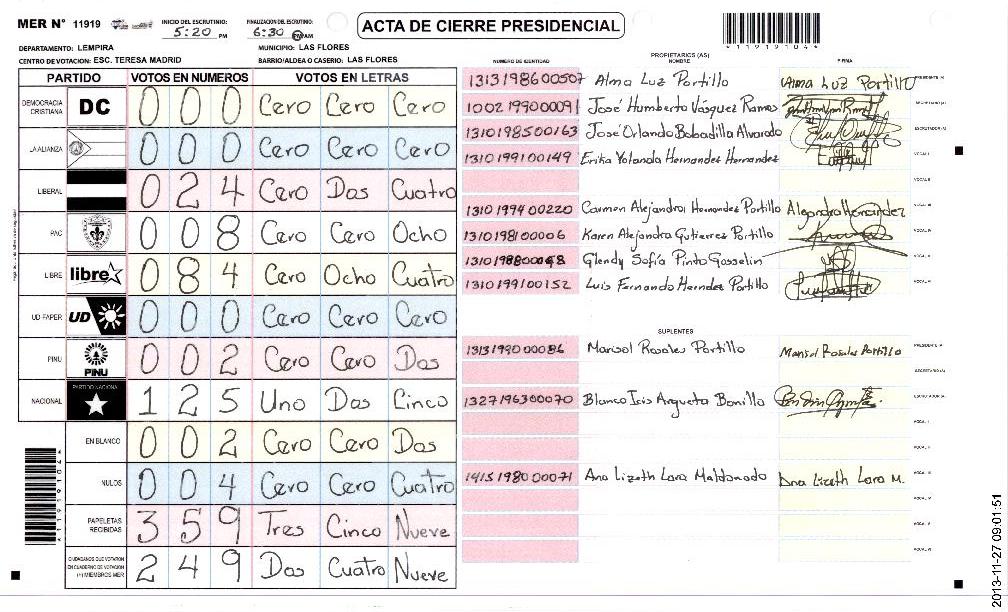 MER N° 11919
INICIO DEL ESCRUTINIO:
5:20 PM
FINALIZACIÓN DEL ESCRUTINIO:
6:30 PM AM
ACTA DE CIERRE PRESIDENCIAL
*1191910 4*
DEPARTAMENTO: LEMPIRA
MUNICIPIO: LAS FLORES
CENTRO DE VOTACION: ESC. TERESA MADRID
BARRIO/ALDEA O CASERIO: LAS FLORES
PARTIDO VOTOS EN NUMEROS VOTOS EN LETRAS
DEMOCRACIA CRISTIANA DC 0 0 0 Cero Cero Cero
LA ALIANZA 0 0 0 Cero Cero Cero
LIBERAL 0 2 4 Cero Dos Cuatro
PAC 0 0 8 Cero Cero Ocho
LIBRE libre 0 8 4 Cero Ocho Cuatro
UD-FAPER UD 0 0 0 Cero Cero Cero
PINU PINU 0 0 2 Cero Cero Dos
NACIONAL PARTIDO NACIONAL 1 2 5 Uno Dos Cinco
EN BLANCO 0 0 2 Cero Cero Dos
NULOS 0 0 4 Cero Cero Cuatro
PAPELETAS RECIBIDAS 3 5 9 Tres Cinco Nueve
CIUDADANOS QUE VOTARON EN CUADERNO DE VOTACION (+) MIEMBROS MER 2 4 9 Dos Cuatro Nueve
PROPIETARIOS (AS)
NUMERO DE IDENTIDAD NOMBRE FIRMA
1313198600507 Alma Luz Portillo Alma Luz Portillo PRESIDENTE (A)
1002199000091 José Humberto Vásquez Ramos SECRETARIO (A)
1310198500163 José Orlando Bobadilla Alvarado ESCRUTADOR (A)
1310199100149 Erika Yolanda Hernandez Hernandez VOCAL I
VOCAL II
1310199400220 Carmen Alejandra Hernandez Portillo Alejandra Hernández VOCAL III
1310198100006 Karen Alejandra Gutierrez Portillo VOCAL IV
Glendy Sofía Pinto Gosselin VOCAL V
1310199100152 Luis Fernando Herndez Portillo VOCAL VI
SUPLENTES
1313199000086 Marisol Rosales Portillo Marisol Rosales Portillo PRESIDENTE (A)
SECRETARIO (A)
1327196300070 Blanca Isis Argueta Bonilla ESCRUTADOR (A)
VOCAL I
VOCAL II
1415198000071 Ana Lizeth Lara Maldonado Ana Lizeth Lara M. VOCAL III
VOCAL IV
VOCAL V
VOCAL VI
2013-11-27 09:01:51